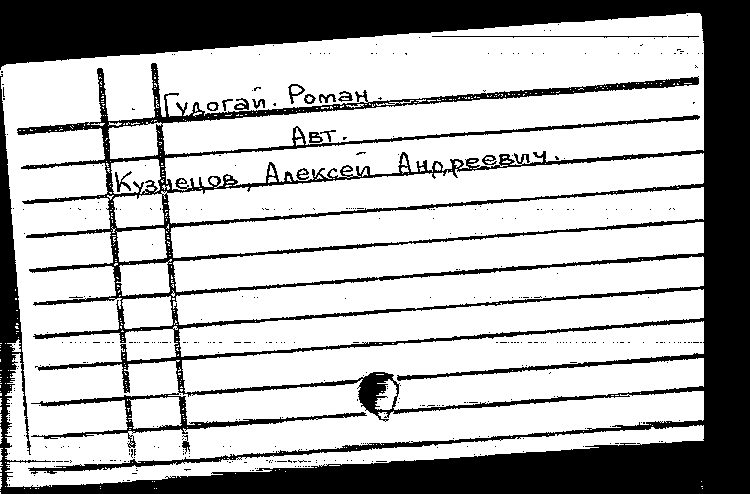 Гудогай. Роман.
Авт.
Кузнецов, Алексей Андреевич.